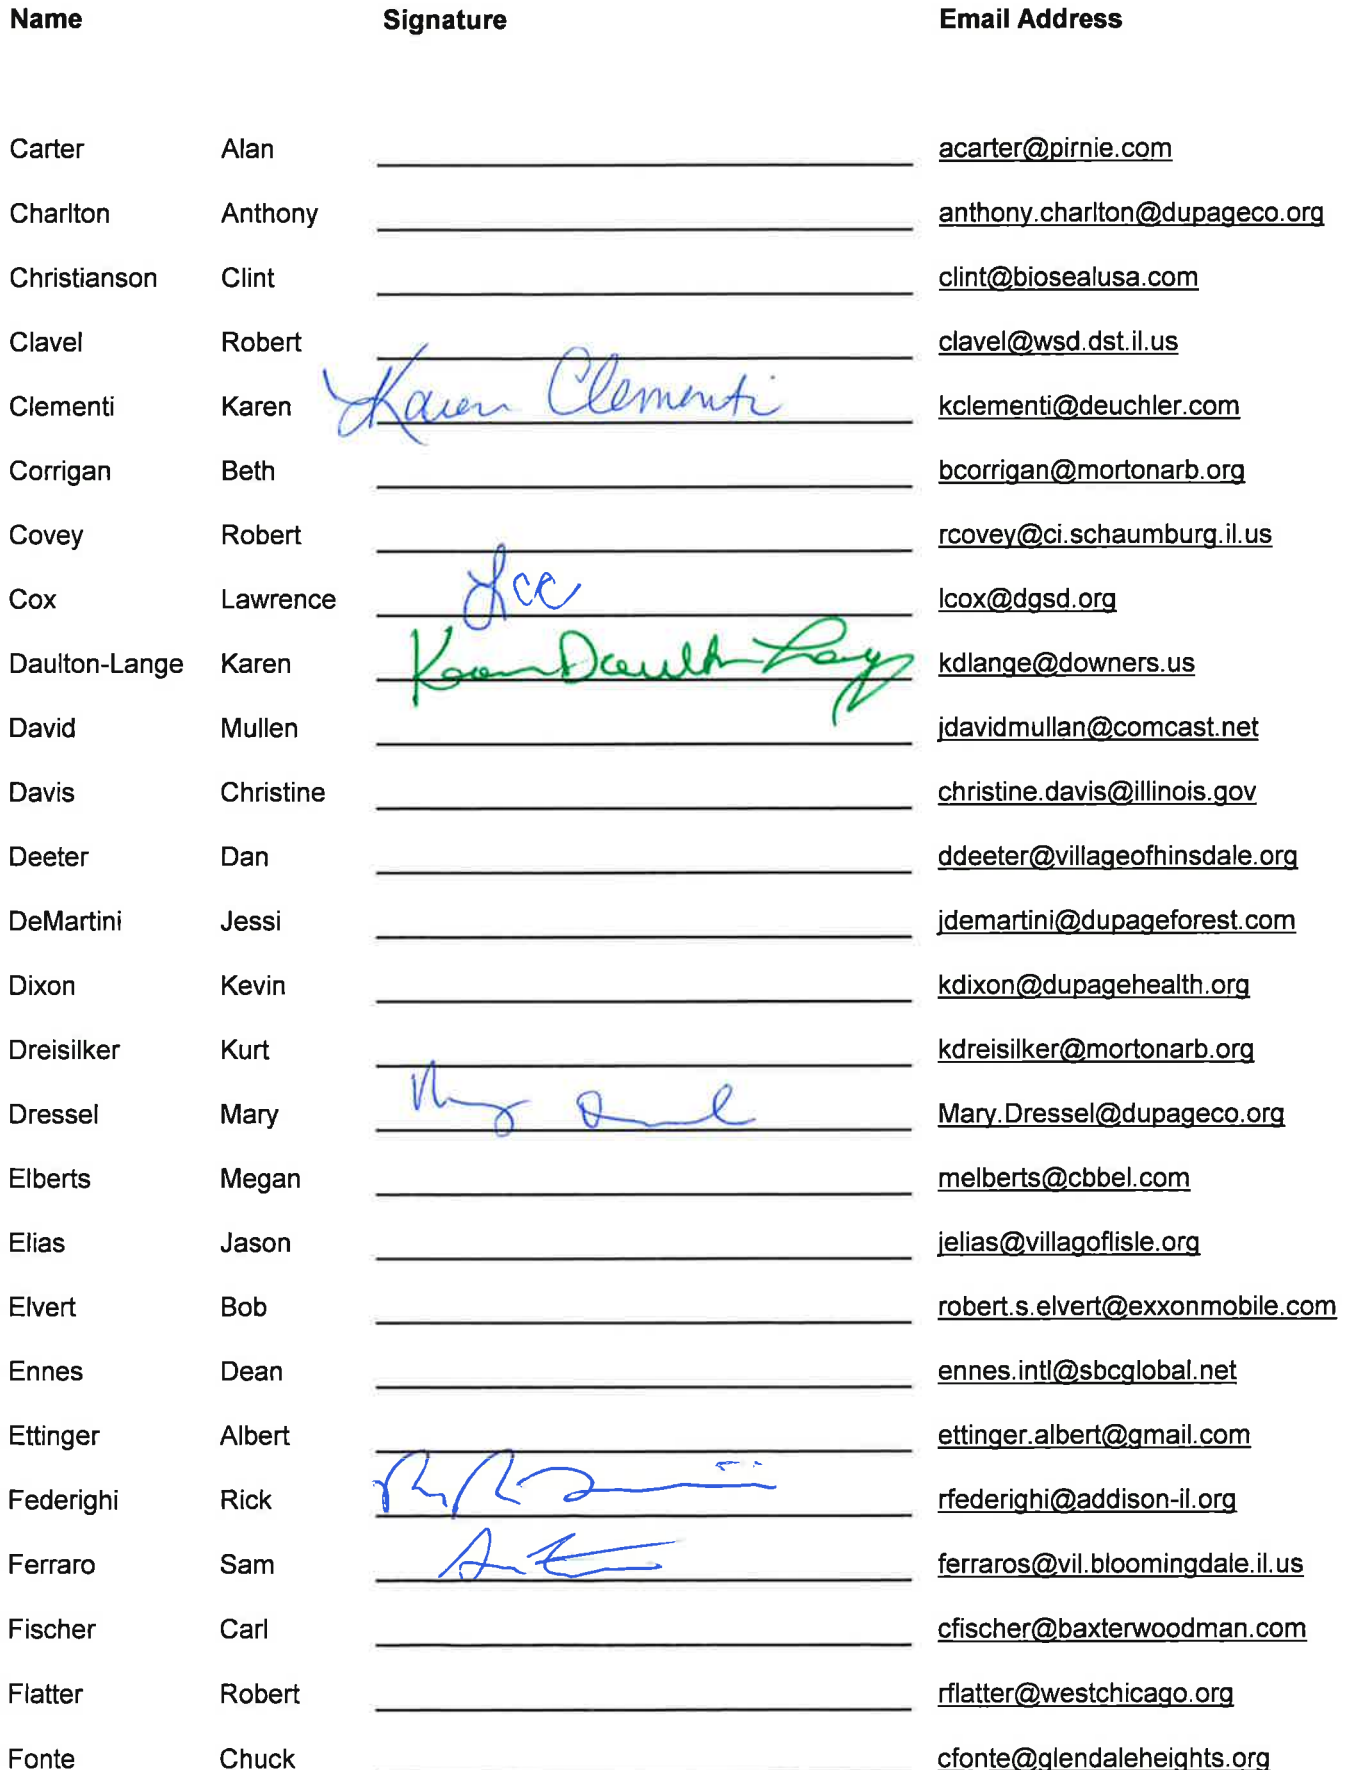 Name Signature Email Address
Carter Alan acarter@pirnie.com
Charlton Anthony anthony.charlton@dupageco.org
Christianson Clint clint@biosealusa.com
Clavel Robert clavel@wsd.dst.il.us
Clementi Karen Karen Clementi kclementi@deuchler.com
Corrigan Beth bcorrigan@mortonarb.org
Covey Robert rcovey@ci.schaumburg.il.us
Cox Lawrence lcox@dgsd.org
Daulton-Lange Karen Karen Daulton-Lange kdlange@downers.us
David Mullen jdavidmullan@comcast.net
Davis Christine christine.davis@illinois.gov
Deeter Dan ddeeter@villageofhinsdale.org
DeMartini Jessi jdemartini@dupageforest.com
Dixon Kevin kdixon@dupagehealth.org
Dreisilker Kurt kdreisilker@mortonarb.org
Dressel Mary Mary.Dressel@dupageco.org
Elberts Megan melberts@cbbel.com
Elias Jason jelias@villagoflisle.org
Elvert Bob robert.s.elvert@exxonmobile.com
Ennes Dean ennes.intl@sbcglobal.net
Ettinger Albert ettinger.albert@gmail.com
Federighi Rick rfederighi@addison-il.org
Ferraro Sam ferraros@vil.bloomingdale.il.us
Fischer Carl cfischer@baxterwoodman.com
Flatter Robert rflatter@westchicago.org
Fonte Chuck cfonte@glendaleheights.org